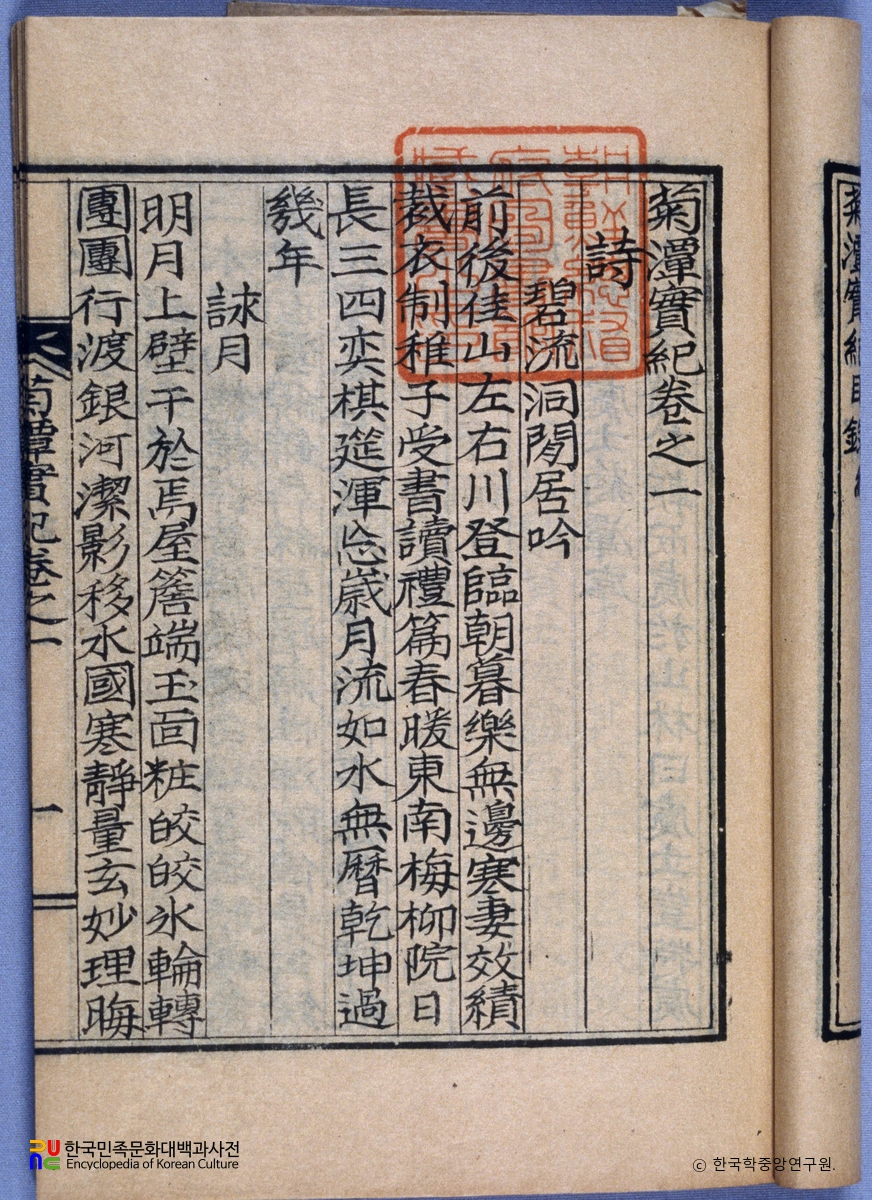 菊潭實紀卷之一
詩
碧流洞閒居吟
前後佳山左右川登臨朝暮樂無邊寒妻效績
裁衣制稚子受書讀禮篇春暖東南梅柳院日
長三四奕棋筵渾忘歲月流如水無曆乾坤過
幾年
詠月
明月上壁干於焉屋簷端玉面粧皎皎氷輪轉
團團行渡銀河潔影移水國寒靜量玄妙理晦
菊潭實紀卷之一
一
菊潭實紀目錄
한국민족문화대백과사전
Encyclopedia of Korean Culture
ⓒ 한국학중앙연구원.